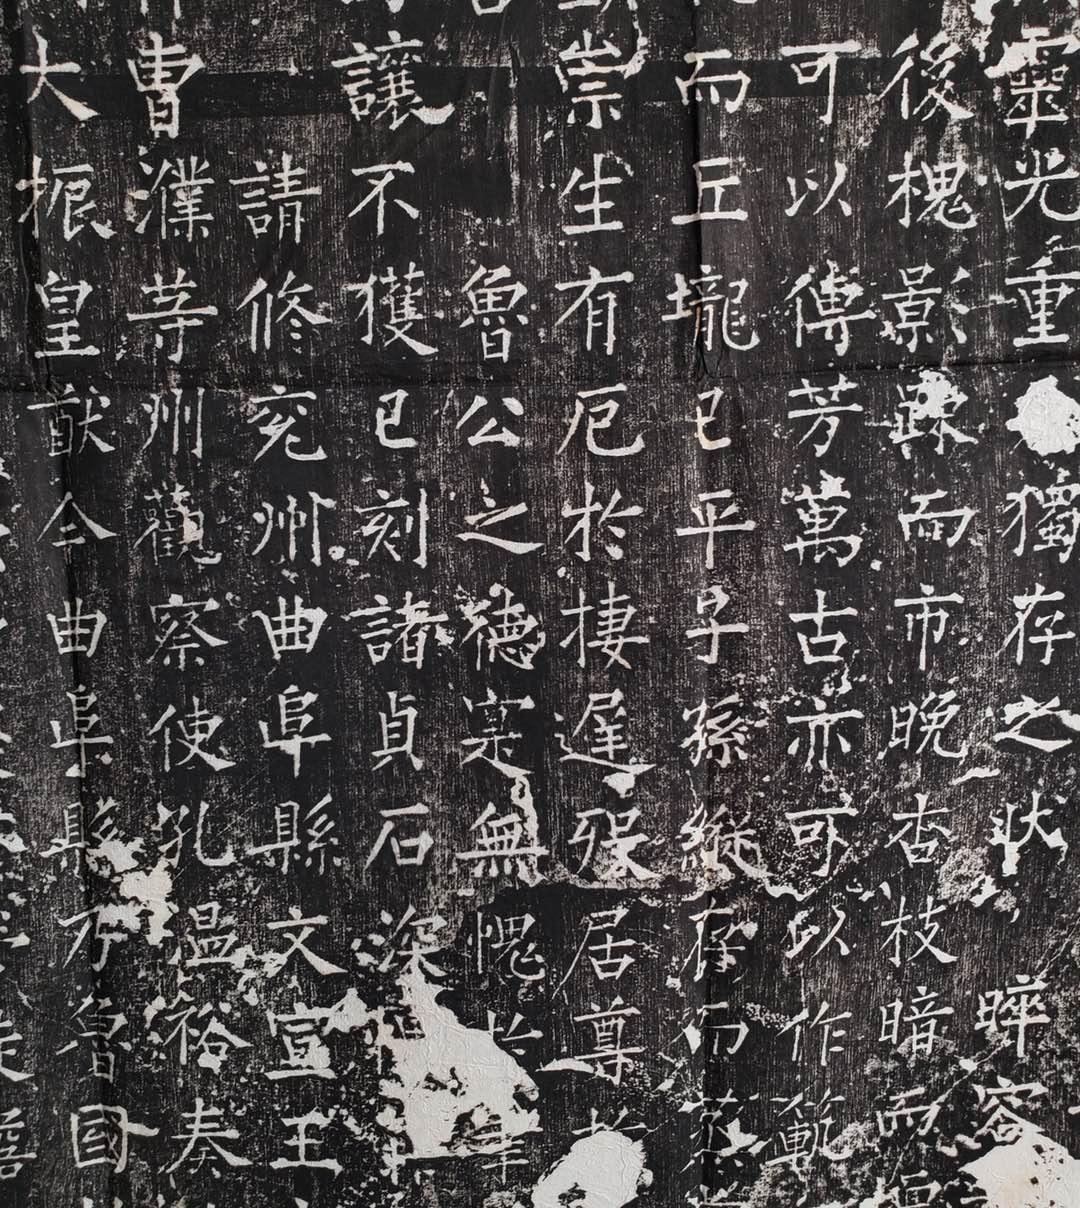 靈光重獨存之狀睟容
後槐影疎而市晚杏枝暗而
可以傳芳萬古亦可以作範
而丘壠已平子孫縱存而
崇生有厄於棲遲歿居尊
魯公之德寔無愧於
讓不獲已刻諸貞石深
請修兗州曲阜縣文宣王
曹濮等州觀察使孔溫裕奏
大振皇猷今曲阜縣乃魯國